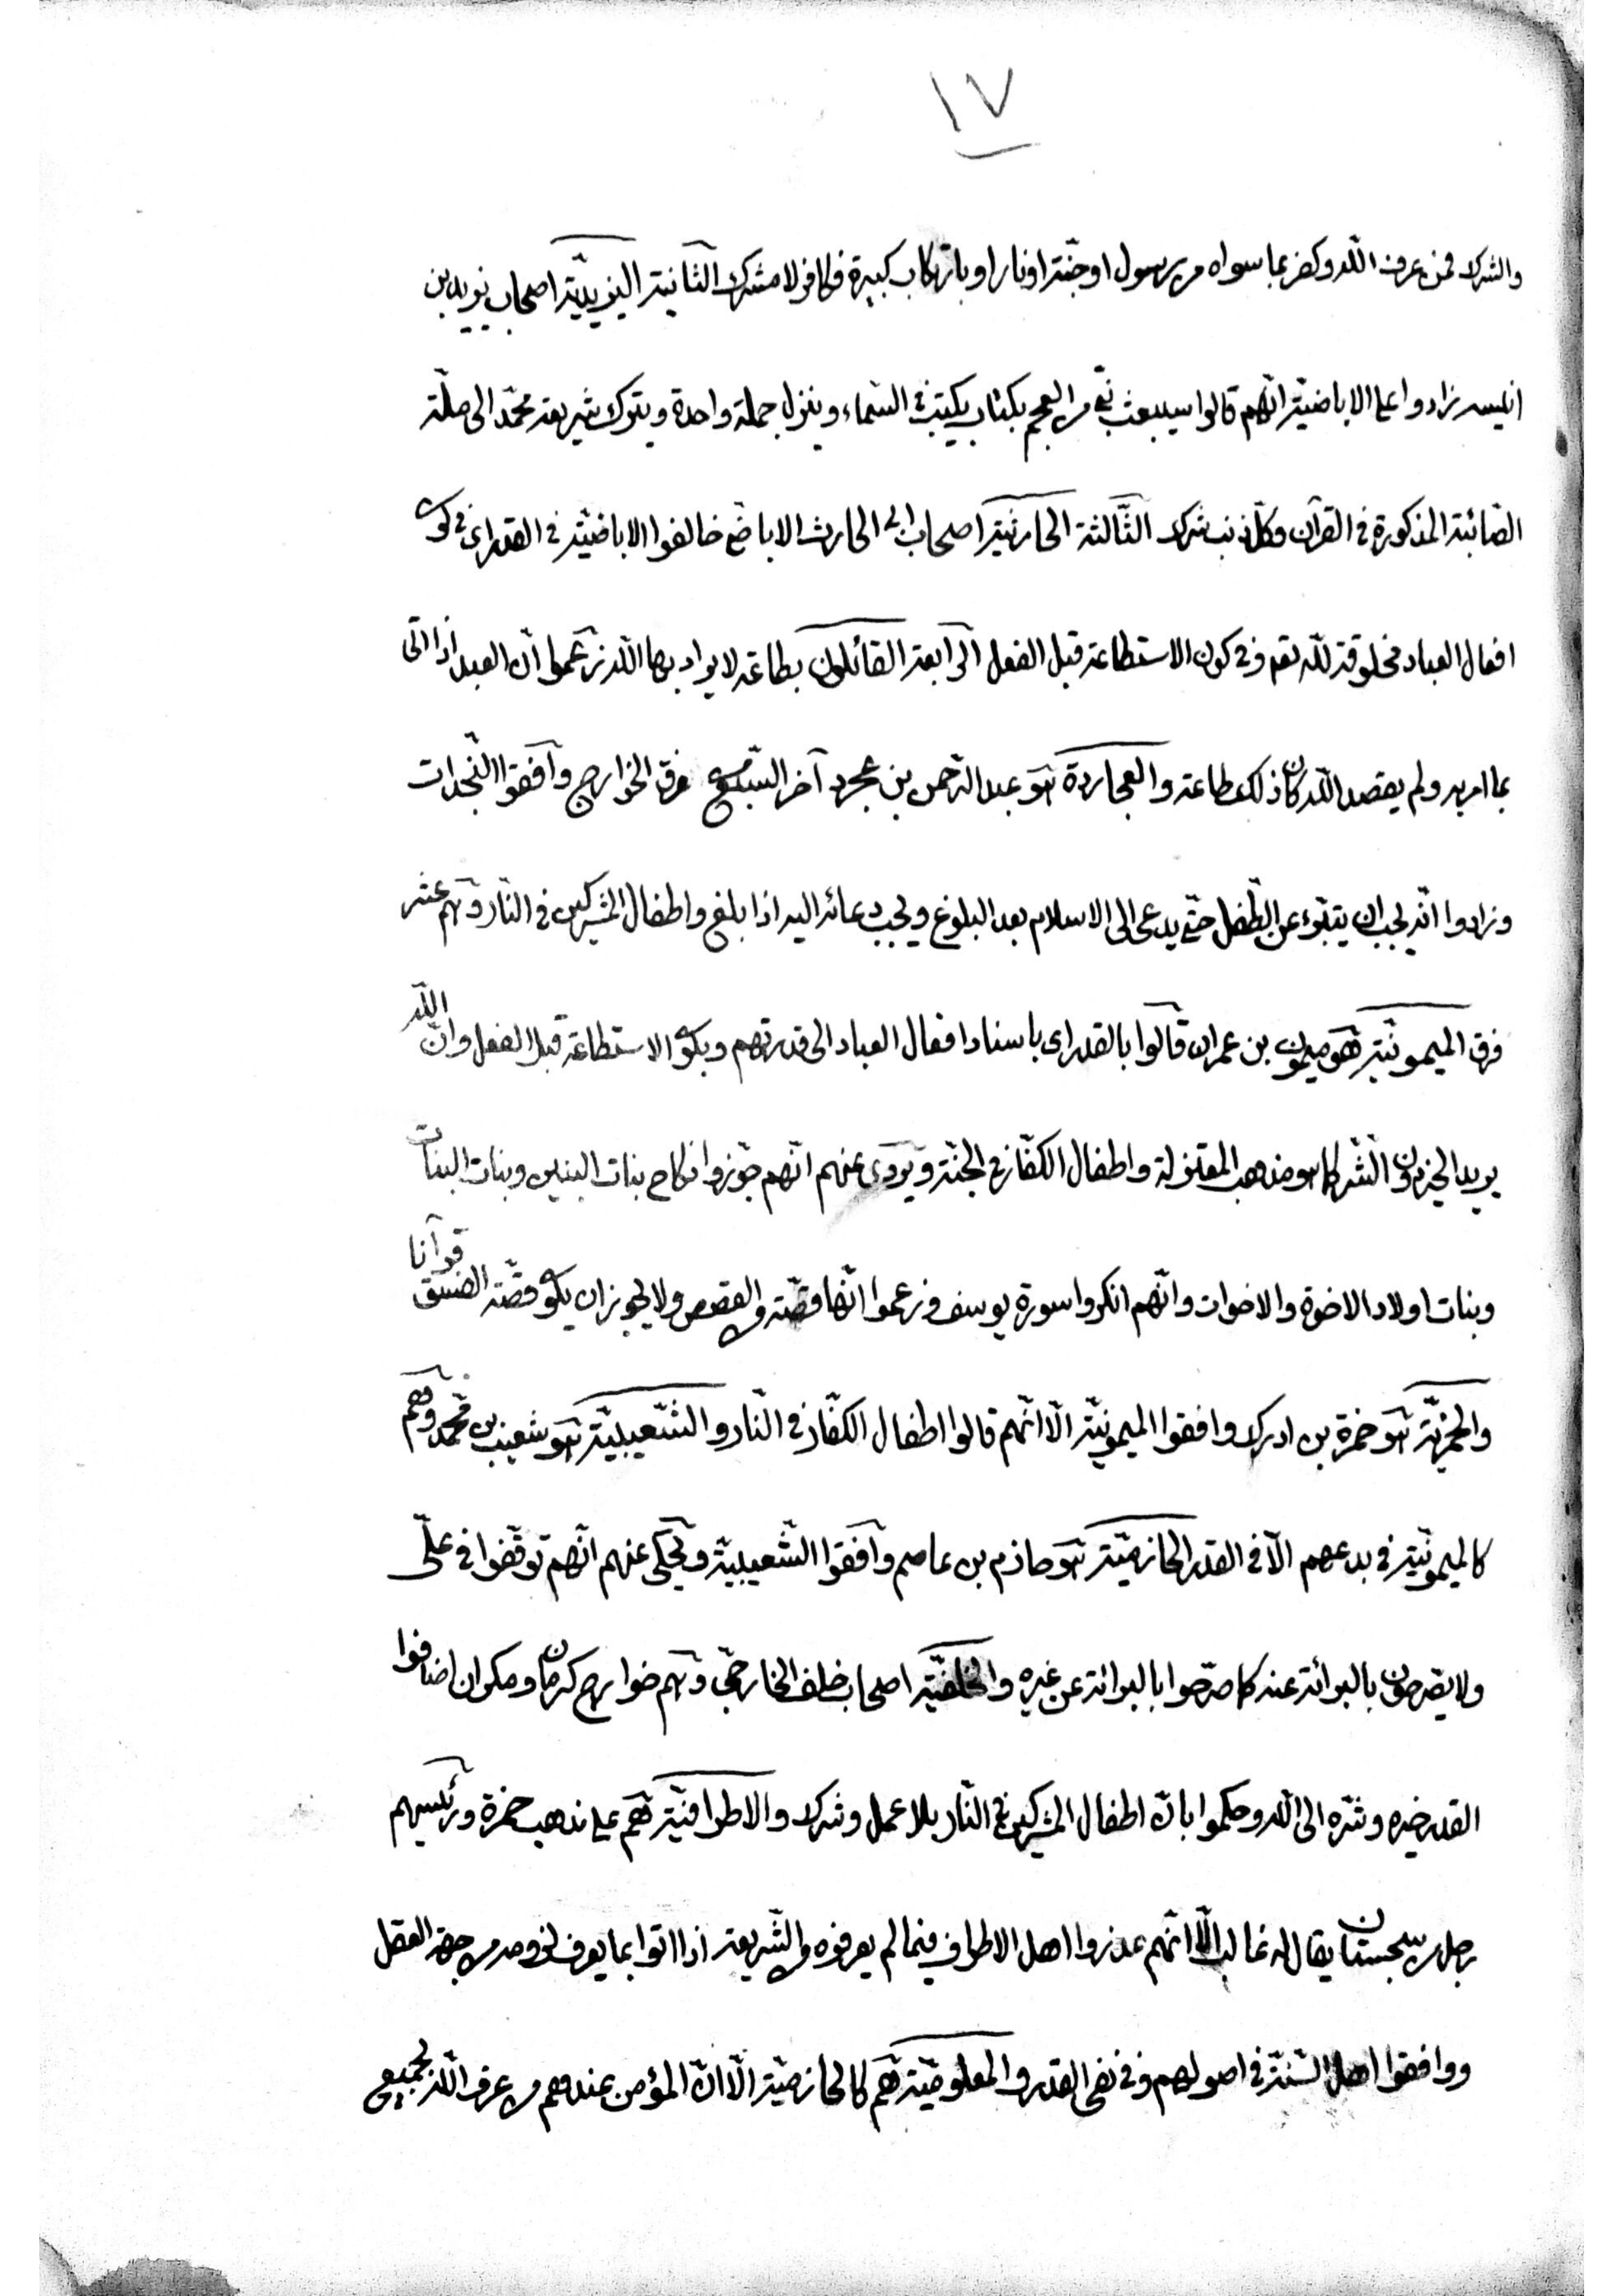 ١٧
والشرك فمن عرف الله وكفر بما سواه من رسول او جنة او نار او بارتكاب كبيرة فكافر لا مشرك الثانية اليزيدية اصحاب يزيد بن
انيسه زادوا على الاباضية انهم قالوا سيبعث نبي من العجم بكتاب يكتب في السماء وينزل جملة واحدة ويترك شريعة محمد الى ملة
الصائبة المذكورة في القرآن وكل ذنب شرك الثالثة الحارثية اصحاب ابي الحارث الاباضي خالفوا الاباضية في القدر اي في كون
افعال العباد مخلوقة لله تعم وفي كون الاستطاعة قبل الفعل الرابعة القائلون بطاعة لا يراد بها الله زعموا ان العبد اذا اتى
بما امر به ولم يقصد الله كان ذلك طاعة والعجاردة هو عبد الرحمن بن عجرد آخر السبع من فرق الخوارج وافقوا النجدات
وزادوا انه يجب ان يتبرء عن الطفل حتى يدعى الى الاسلام بعد البلوغ ويجب دعائه اليه اذا بلغ واطفال المشركين في النار وهم عشر
فرق الميمونية هو ميمون بن عمران قالوا بالقدر اى باسناد افعال العباد الى قدرتهم وبكون الاستطاعة قبل الفعل وان الله
يريد الخير دون الشر كما هو مذهب المعتزلة واطفال الكفار في الجنة ويروى عنهم انهم جوزوا نكاح بنات البنين وبنات البنات
وبنات اولاد الاخوة والاخوات وانهم انكروا سورة يوسف وزعموا انها قصة من القصص ولا يجوز ان يكون قصة الفسق قرآنا
والحمزية هو حمزة بن ادرك وافقوا الميمونية الا انهم قالوا اطفال الكفار في النار والشعيبية هو شعيب بن محمد وهم
كالميمونية في بدعهم الا في القدر الحازمية هو حازم بن عاصم وافقوا الشعيبية ويحكى عنهم انهم توقفوا في علي
ولا يصرحون بالبرائة عنه كما صرحوا بالبرائة عن غيره والخلفية اصحاب خلف الخارجي وهم خوارج كرمان ومكران اضافوا
القدر خيره وشره الى الله وحكموا بان اطفال المشركين في النار بلا عمل وشرك والاطرافية هم على مذهب حمزة ورئيسهم
رجل من سجستان يقال له غالب الا انهم عذروا اهل الاطراف فيما لم يعرفوه من الشريعة اذا اتوا بما يعرف لزومه من جهة العقل
ووافقوا اهل السنة في اصولهم وفي نفى القدر والمعلومية هم كالحازمية الا ان المؤمن عندهم من عرف الله بجميع